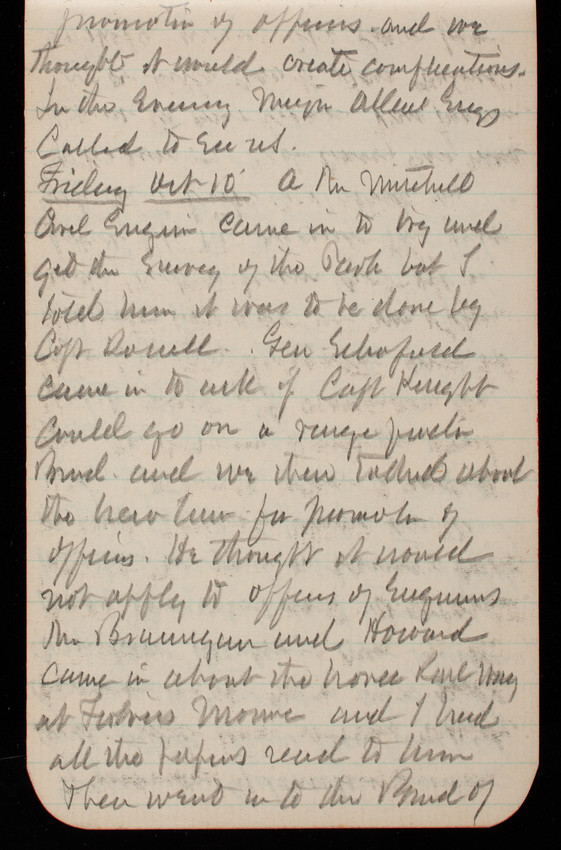 promotion of officers and we
thought it would create complications.
In the Evening Major Allen Engs
Called to See us.
Friday Oct 10 A Mr Mitchell
Civil Engin came in to try and
get the Survey of the Park but I
told him it was to be done by
Capt Rosell. Gen Schofield
came in to ask if Capt Knight
could go on a range finder
Board and we then talked about
the new law for promotn of
officers. He thought it would
not apply to officers of Engineers
Mr Brannigan and Howard
came in about the horse Rail Way
at Fortress Monroe and I had
all the papers read to him
Then went in to the Board of